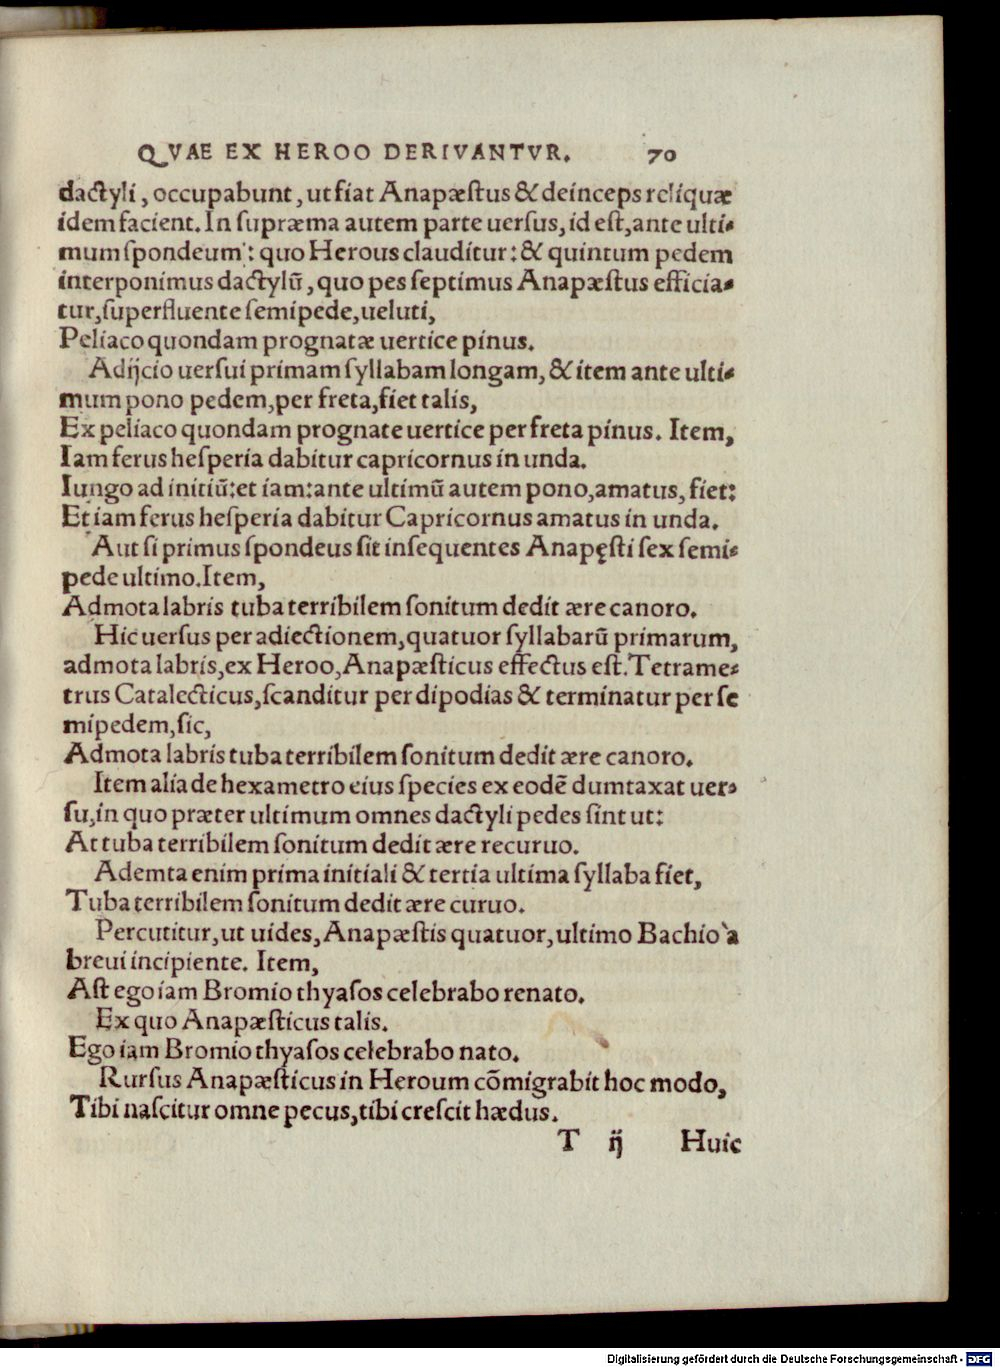 QVAE EX HEROO DERIVANTVR. 70
dactyli, occupabunt, ut fiat Anapæstus & deinceps reliquæ
idem facient. In supræma autem parte uersus, id est, ante ulti-
mum spondeum: quo Herous clauditur: & quintum pedem
interponimus dactylū, quo pes septimus Anapæstus efficia-
tur, superfluente semipede, ueluti,
Peliaco quondam prognatæ uertice pinus.
Adijcio uersui primam syllabam longam, & item ante ulti-
mum pono pedem, per freta, fiet talis,
Ex peliaco quondam prognate uertice per freta pinus. Item,
Iam ferus hesperia dabitur capricornus in unda.
Iungo ad initiū: et iam: ante ultimū autem pono, amatus, fiet:
Et iam ferus hesperia dabitur Capricornus amatus in unda.
Aut si primus spondeus sit insequentes Anapęsti sex semi-
pede ultimo. Item,
Admota labris tuba terribilem sonitum dedit ære canoro.
Hic uersus per adiectionem, quatuor syllabarū primarum,
admota labris, ex Heroo, Anapæsticus effectus est. Tetrame-
trus Catalecticus, scanditur per dipodias & terminatur per se
mipedem, sic,
Admota labris tuba terribilem sonitum dedit ære canoro.
Item alia de hexametro eius species ex eodē dumtaxat uer-
su, in quo præter ultimum omnes dactyli pedes sint ut:
At tuba terribilem sonitum dedit ære recuruo.
Ademta enim prima initiali & tertia ultima syllaba fiet,
Tuba terribilem sonitum dedit ære curuo.
Percutitur, ut uides, Anapæstis quatuor, ultimo Bachio à
breui incipiente. Item,
Ast ego iam Bromio thyasos celebrabo renato.
Ex quo Anapæsticus talis.
Ego iam Bromio thyasos celebrabo nato.
Rursus Anapæsticus in Heroum cōmigrabit hoc modo,
Tibi nascitur omne pecus, tibi crescit hædus.
T ij Huic
Digitalisierung gefördert durch die Deutsche Forschungsgemeinschaft - DFG